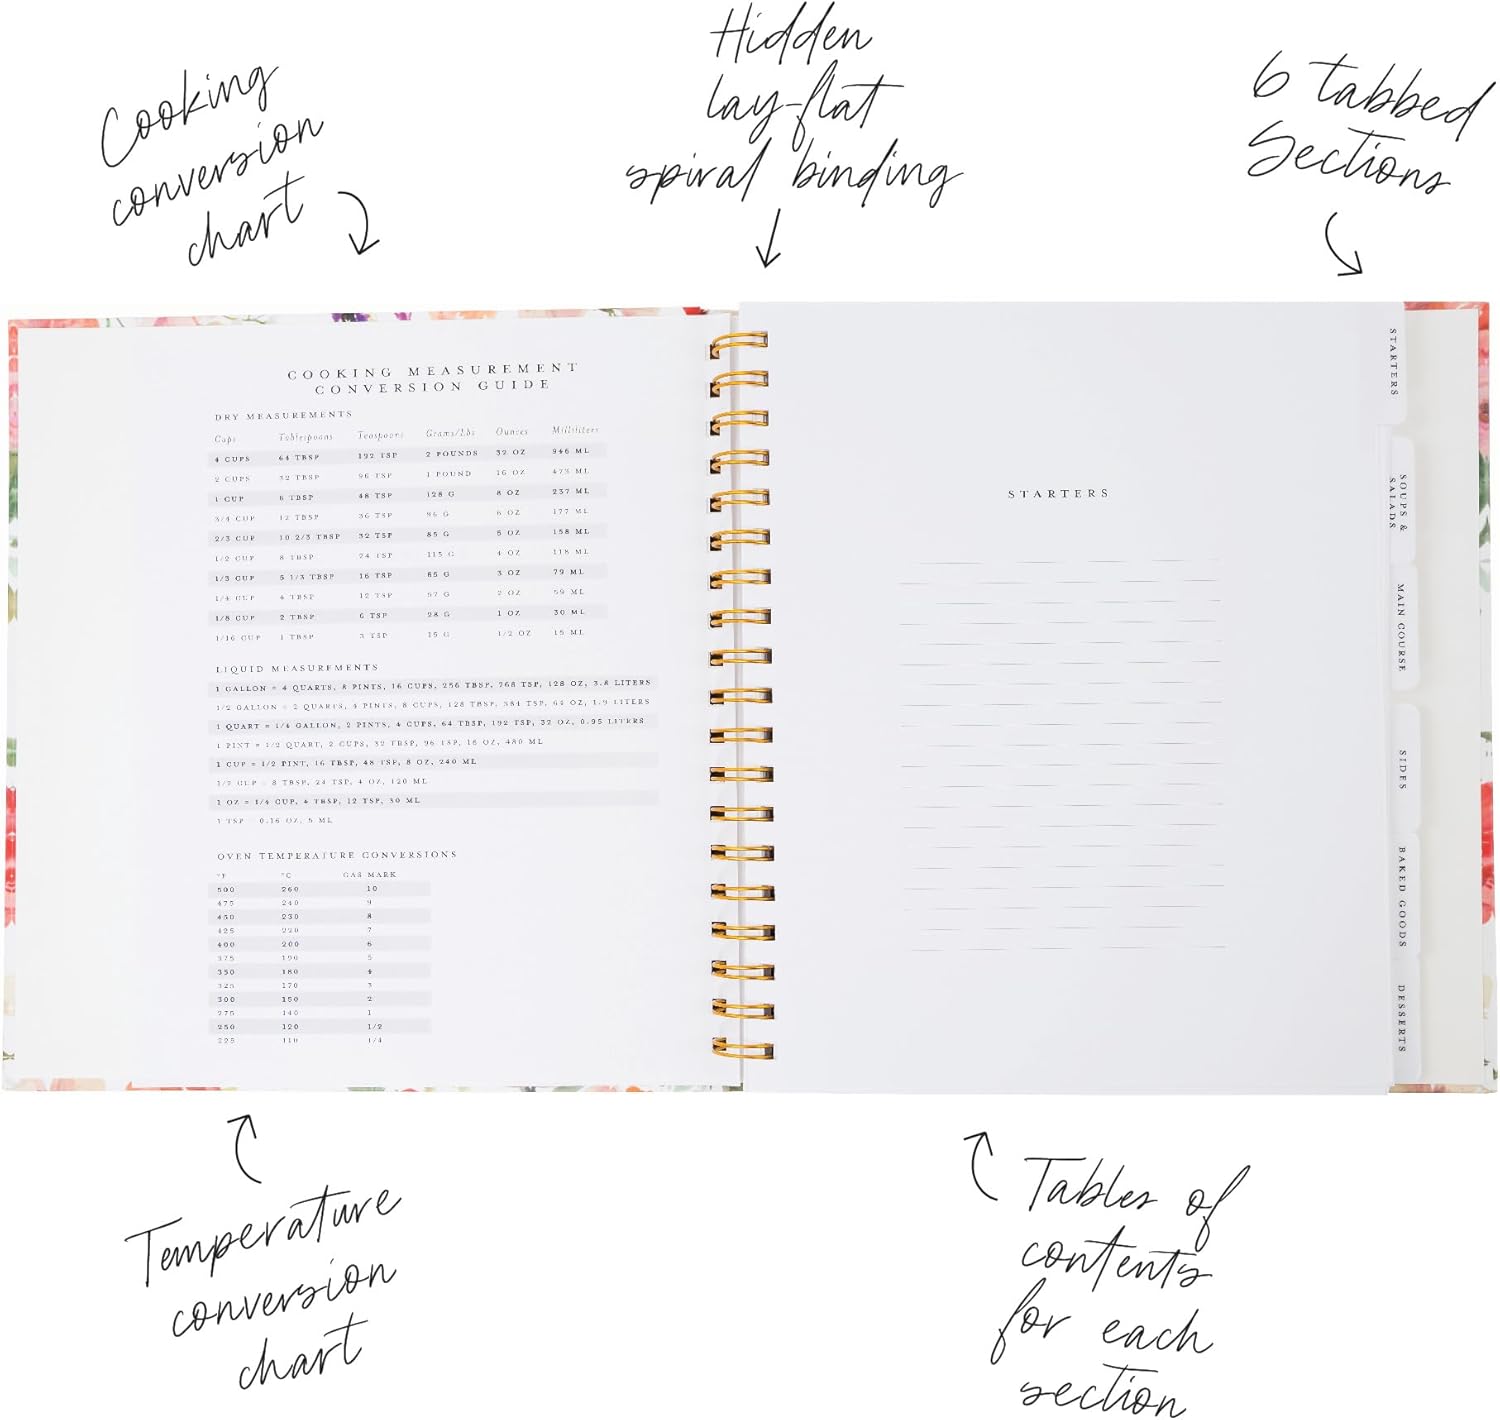 Cooking
conversion
chart
Hidden
lay-flat
spiral binding
6 tabbed
Sections
COOKING MEASUREMENT
CONVERSION GUIDE
DRY MEASUREMENTS
Cups Tablespoons Teaspoons Grams/Lbs Ounces Milliliters
4 CUPS 64 TBSP 192 TSP 2 POUNDS 32 OZ 946 ML
2 CUPS 32 TBSP 96 TSP 1 POUND 16 OZ 473 ML
1 CUP 48 TSP 128 G 8 OZ 237 ML
3/4 CUP 12 TBSP 36 TSP 96 G 6 OZ 177 ML
2/3 CUP 10 2/3 TBSP 32 TSP 85 G 5 OZ 158 ML
1/2 CUP 8 TBSP 24 TSP 4 OZ 118 ML
1/3 CUP 5 1/3 TBSP 16 TSP 3 OZ 79 ML
1/4 CUP 4 TBSP 12 TSP 2 OZ 59 ML
1/8 CUP 2 TBSP 6 TSP 28 G 1 OZ 30 ML
1/16 CUP 1 TBSP 3 TSP 15 G 1/2 OZ 15 ML
LIQUID MEASUREMENTS
1 GALLON = 4 QUARTS, 8 PINTS, 16 CUPS, 256 TBSP, 768 TSP, 128 OZ, 3.8 LITERS
1/2 GALLON = 2 QUARTS, 4 PINTS, 8 CUPS, 128 TBSP, 384 TSP, 64 OZ, 1.9 LITERS
1 QUART = 1/4 GALLON, 2 PINTS, 4 CUPS, 64 TBSP, 192 TSP, 32 OZ, 0.95 LITERS
1 PINT = 1/2 QUART, 2 CUPS, 32 TBSP, 96 TSP, 16 OZ, 480 ML
1 CUP = 1/2 PINT, 16 TBSP, 48 TSP, 8 OZ, 240 ML
1/2 CUP = 8 TBSP, 24 TSP, 4 OZ, 120 ML
1 OZ = 1/4 CUP, 4 TBSP, 12 TSP, 30 ML
1 TSP = 0.16 OZ, 5 ML
OVEN TEMPERATURE CONVERSIONS
°F °C GAS MARK
500 260 10
475 240 9
450 230 8
425 220 7
400 200 6
375 190 5
350 180 4
325 170 3
300 150 2
275 140 1
250 120 1/2
225 110 1/4
STARTERS
STARTERS
SOUPS &
SALADS
MAIN COURSE
SIDES
BAKED GOODS
DESSERTS
Temperature
conversion
chart
Tables of
contents
for each
section